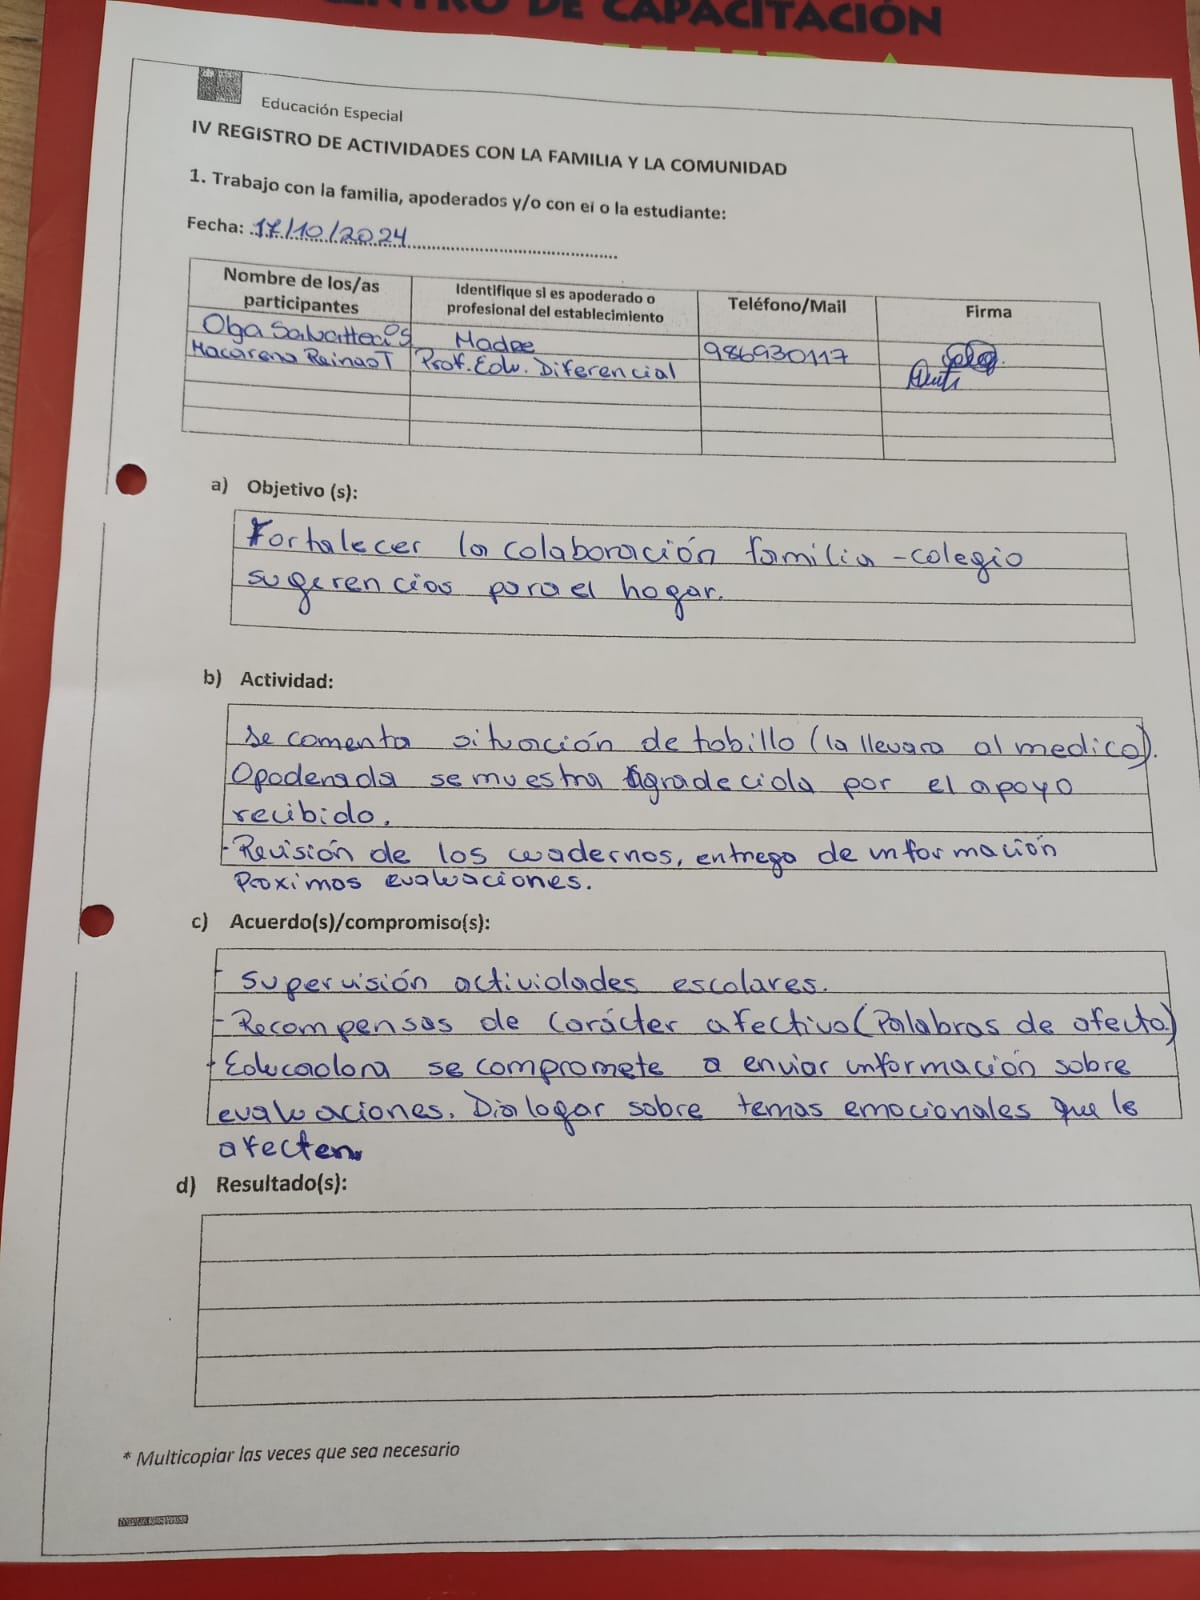 DE CAPACITACIÓN
Educación Especial
IV REGISTRO DE ACTIVIDADES CON LA FAMILIA Y LA COMUNIDAD
1. Trabajo con la familia, apoderados y/o con el o la estudiante:
Fecha: 17/10/2024
Nombre de los/as participantes | Identifique si es apoderado o profesional del establecimiento | Teléfono/Mail | Firma
Olga | Madre | 986930117
Macarena Reinao T | Prof. Edu. Diferencial
a) Objetivo (s):
Fortalecer la colaboración familia - colegio
sugerencias para el hogar.
b) Actividad:
se comenta situación de tobillo (la llevara al medico).
Apoderada se muestra agradecida por el apoyo
recibido.
- Revisión de los cuadernos, entrega de información
Proximas evaluaciones.
c) Acuerdo(s)/compromiso(s):
- Supervisión actividades escolares.
- Recompensas de carácter afectivo (Palabras de afecto)
- Educadora se compromete a enviar información sobre
evaluaciones. Dialogar sobre temas emocionales que le
afecten.
d) Resultado(s):
* Multicopiar las veces que sea necesario